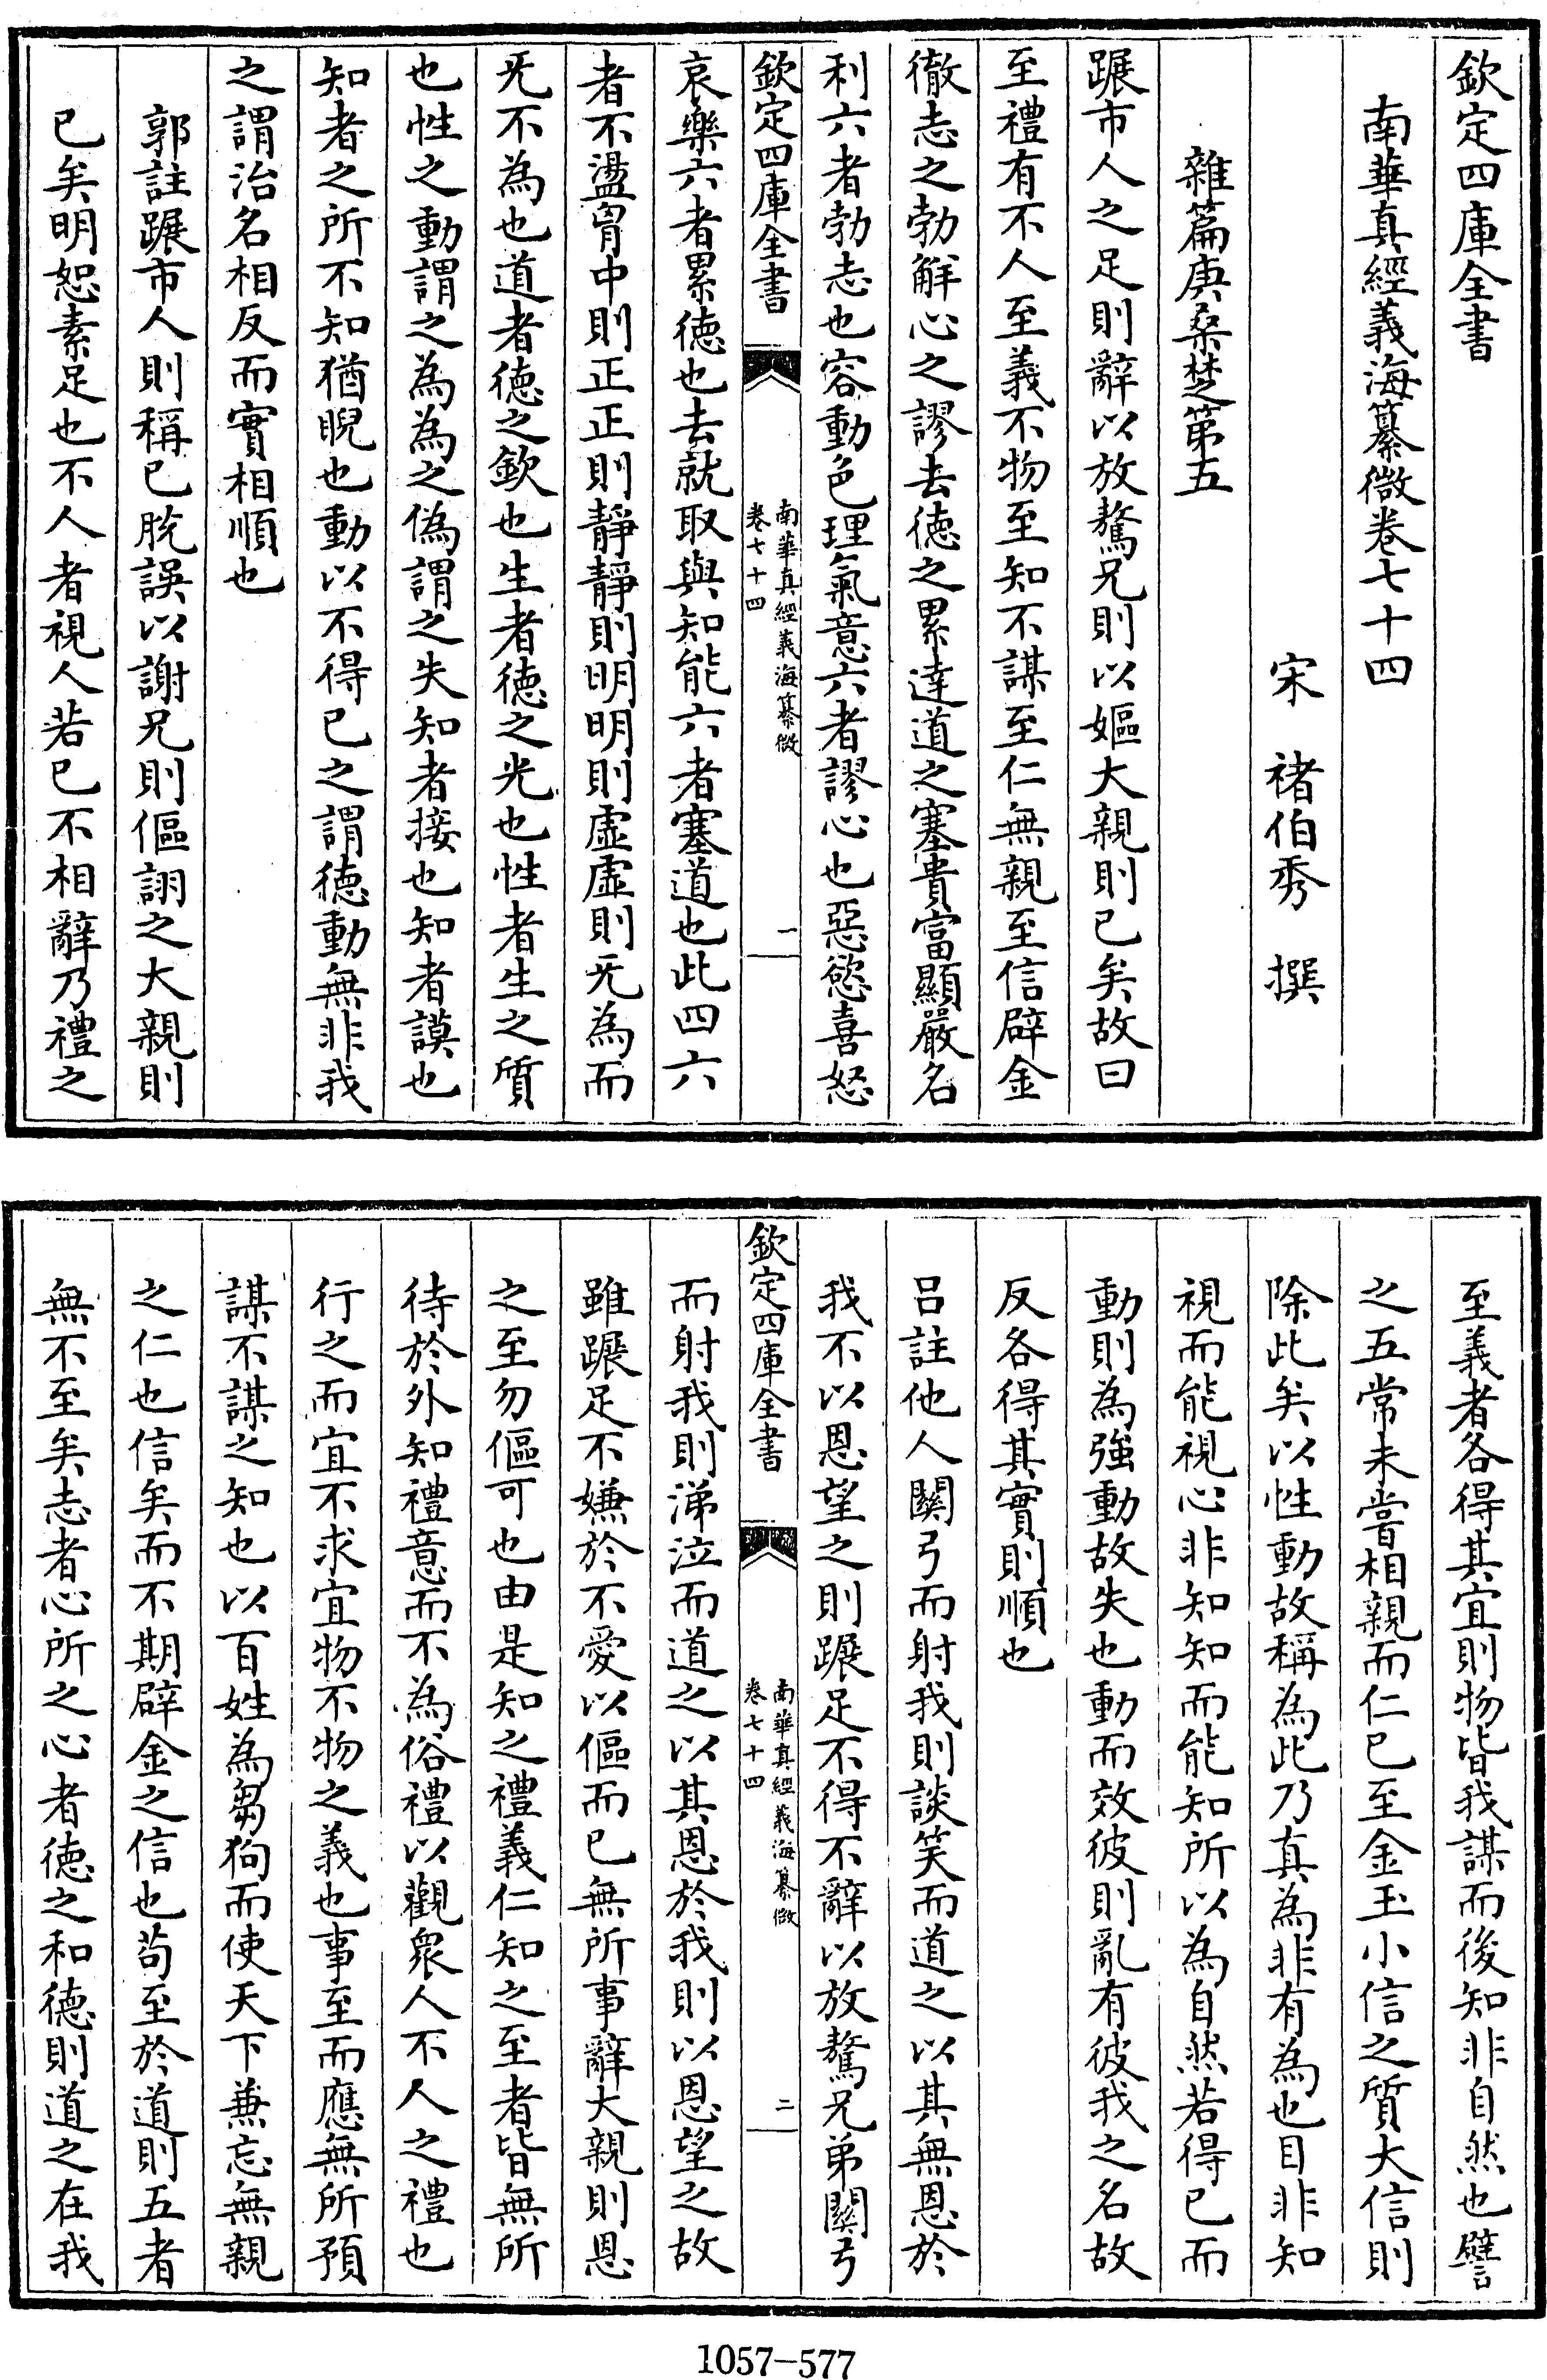 欽定四庫全書
南華真經義海纂微卷七十四
宋　褚伯秀　撰
雜篇庚桑楚第五
蹍市人之足則辭以放驁兄則以嫗大親則已矣故曰
至禮有不人至義不物至知不謀至仁無親至信辟金
徹志之勃解心之謬去徳之累達道之塞貴富顯嚴名
利六者勃志也容動色理氣意六者謬心也惡慾喜怒
欽定四庫全書
南華真經義海纂微
卷七十四
一
哀樂六者累徳也去就取與知能六者塞道也此四六
者不盪胷中則正正則靜靜則明明則虛虛則无為而
无不為也道者徳之欽也生者徳之光也性者生之質
也性之動謂之為為之偽謂之失知者接也知者謨也
知者之所不知猶睨也動以不得已之謂徳動無非我
之謂治名相反而實相順也
郭註蹍市人則稱已脱誤以謝兄則傴詡之大親則
已矣明恕素足也不人者視人若已不相辭乃禮之
至義者各得其宜則物皆我謀而後知非自然也譬
之五常未嘗相親而仁已至金玉小信之質大信則
除此矣以性動故稱為此乃真為非有為也目非知
視而能視心非知知而能知所以為自然若得已而
動則為強動故失也動而效彼則亂有彼我之名故
反各得其實則順也
呂註他人關弓而射我則談笑而道之以其無恩於
我不以恩望之則蹍足不得不辭以放驁兄弟關弓
欽定四庫全書
南華真經義海纂微
卷七十四
二
而射我則涕泣而道之以其恩於我則以恩望之故
雖蹍足不嫌於不愛以傴而已無所事辭大親則恩
之至勿傴可也由是知之禮義仁知之至者皆無所
待於外知禮意而不為俗禮以觀衆人不人之禮也
行之而宜不求宜物不物之義也事至而應無所預
謀不謀之知也以百姓為芻狗而使天下兼忘無親
之仁也信矣而不期辟金之信也茍至於道則五者
無不至矣志者心所之心者徳之和徳則道之在我
1057-577